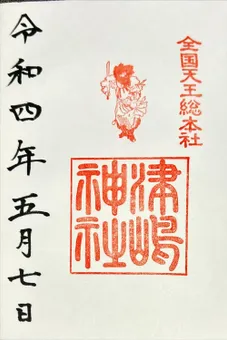 全国天王総本社
津嶋
神社
令和四年五月七日